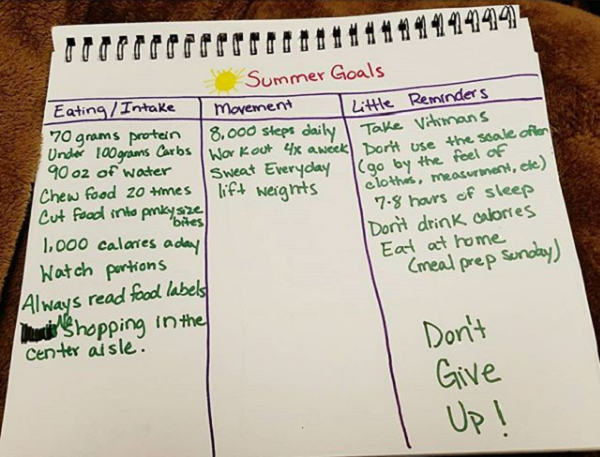 Summer Goals
Eating/Intake
70 grams protein
Under 100grams Carbs
90 oz of water
Chew food 20 times
Cut food into pinky size
bites
1,000 calares a day
Watch portions
Always read food labels
No Shopping in the
center aisle.
Movement
8,000 steps daily
Workout 4x a week
Sweat Everyday
lift weights
Little Reminders
Take Vitimans
Don't use the scale often
(go by the feel of
clothes, measurment, etc)
7-8 hours of sleep
Don't drink calories
Eat at home
(meal prep Sunday)
Don't
Give
Up!